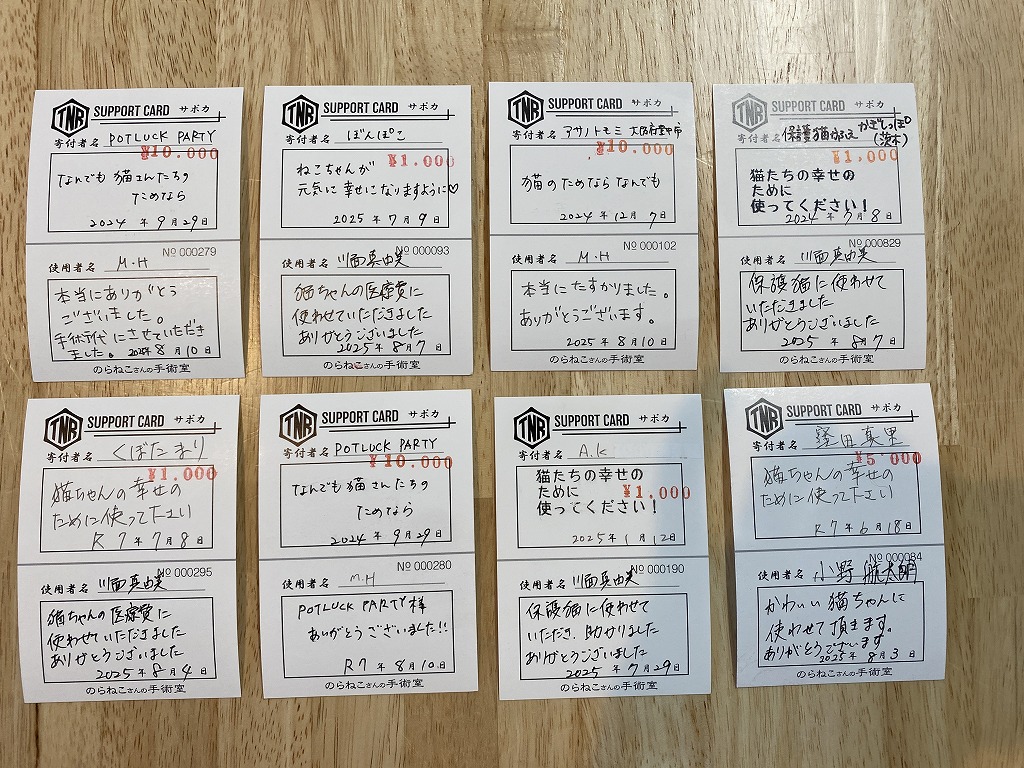 TNR SUPPORT CARD サポカ
寄付者名 POTLUCK PARTY
¥10.000
なんでも猫さんたちの
ためなら
2024 年 9月29日
№ 000279
使用者名 M.H
本当にありがとう
ございました。
手術代にさせていただき
ました。 2025 8月10日
のらねこさんの手術室
TNR SUPPORT CARD サポカ
寄付者名 ぽんぽこ
¥1.000
ねこちゃんが
元気に幸せになりますように♡
2025 年 7月9日
№ 000093
使用者名 川面真由美
猫ちゃんの医療費に
使わせていただきました
ありがとうございました
2025 年 8月7日
のらねこさんの手術室
TNR SUPPORT CARD サポカ
寄付者名 アサノトモミ 大阪府豊中市
¥10.000
猫のためならなんでも
2024 年 12月 7日
№ 000102
使用者名 M.H
本当にたすかりました。
ありがとうございます。
2025 年 8月10日
のらねこさんの手術室
TNR SUPPORT CARD サポカ
寄付者名 保護猫カフェ かぎしっぽ
(茨木)
¥1,000
猫たちの幸せの
ために
使ってください！
2024 年 7月8日
№ 000829
使用者名 川面真由美
保護猫に使わせて
いただきました
ありがとうございました
2025 年 8月7日
のらねこさんの手術室
TNR SUPPORT CARD サポカ
寄付者名 くぼたまり
¥1.000
猫ちゃんの幸せの
ために使って下さい
R 7年 7月8日
№ 000295
使用者名 川面真由美
猫ちゃんの医療費に
使わせていただきました
ありがとうございました
2025 年 8月4日
のらねこさんの手術室
TNR SUPPORT CARD サポカ
寄付者名 POTLUCK PARTY
¥10.000
なんでも猫さんたちの
ためなら
2024 年 9月29日
№ 000280
使用者名 M.H
POTLUCK PARTY様
ありがとうございました!!
R7 年 8月10日
のらねこさんの手術室
TNR SUPPORT CARD サポカ
寄付者名 A.K
猫たちの幸せの
ために ¥1,000
使ってください！
2025年 1月12日
№ 000190
使用者名 川面真由美
保護猫に使わせて
いただき 助かりました
ありがとうございました
2025 年 7月29日
のらねこさんの手術室
TNR SUPPORT CARD サポカ
寄付者名 田真里
¥5 000
猫ちゃんの幸せの
ために使って下さい
R 7年 6月18日
№ 000084
使用者名 小野航太朗
かわいい猫ちゃんに
使わせて頂きます。
ありがとうございます。
2025年 8月3日
のらねこさんの手術室